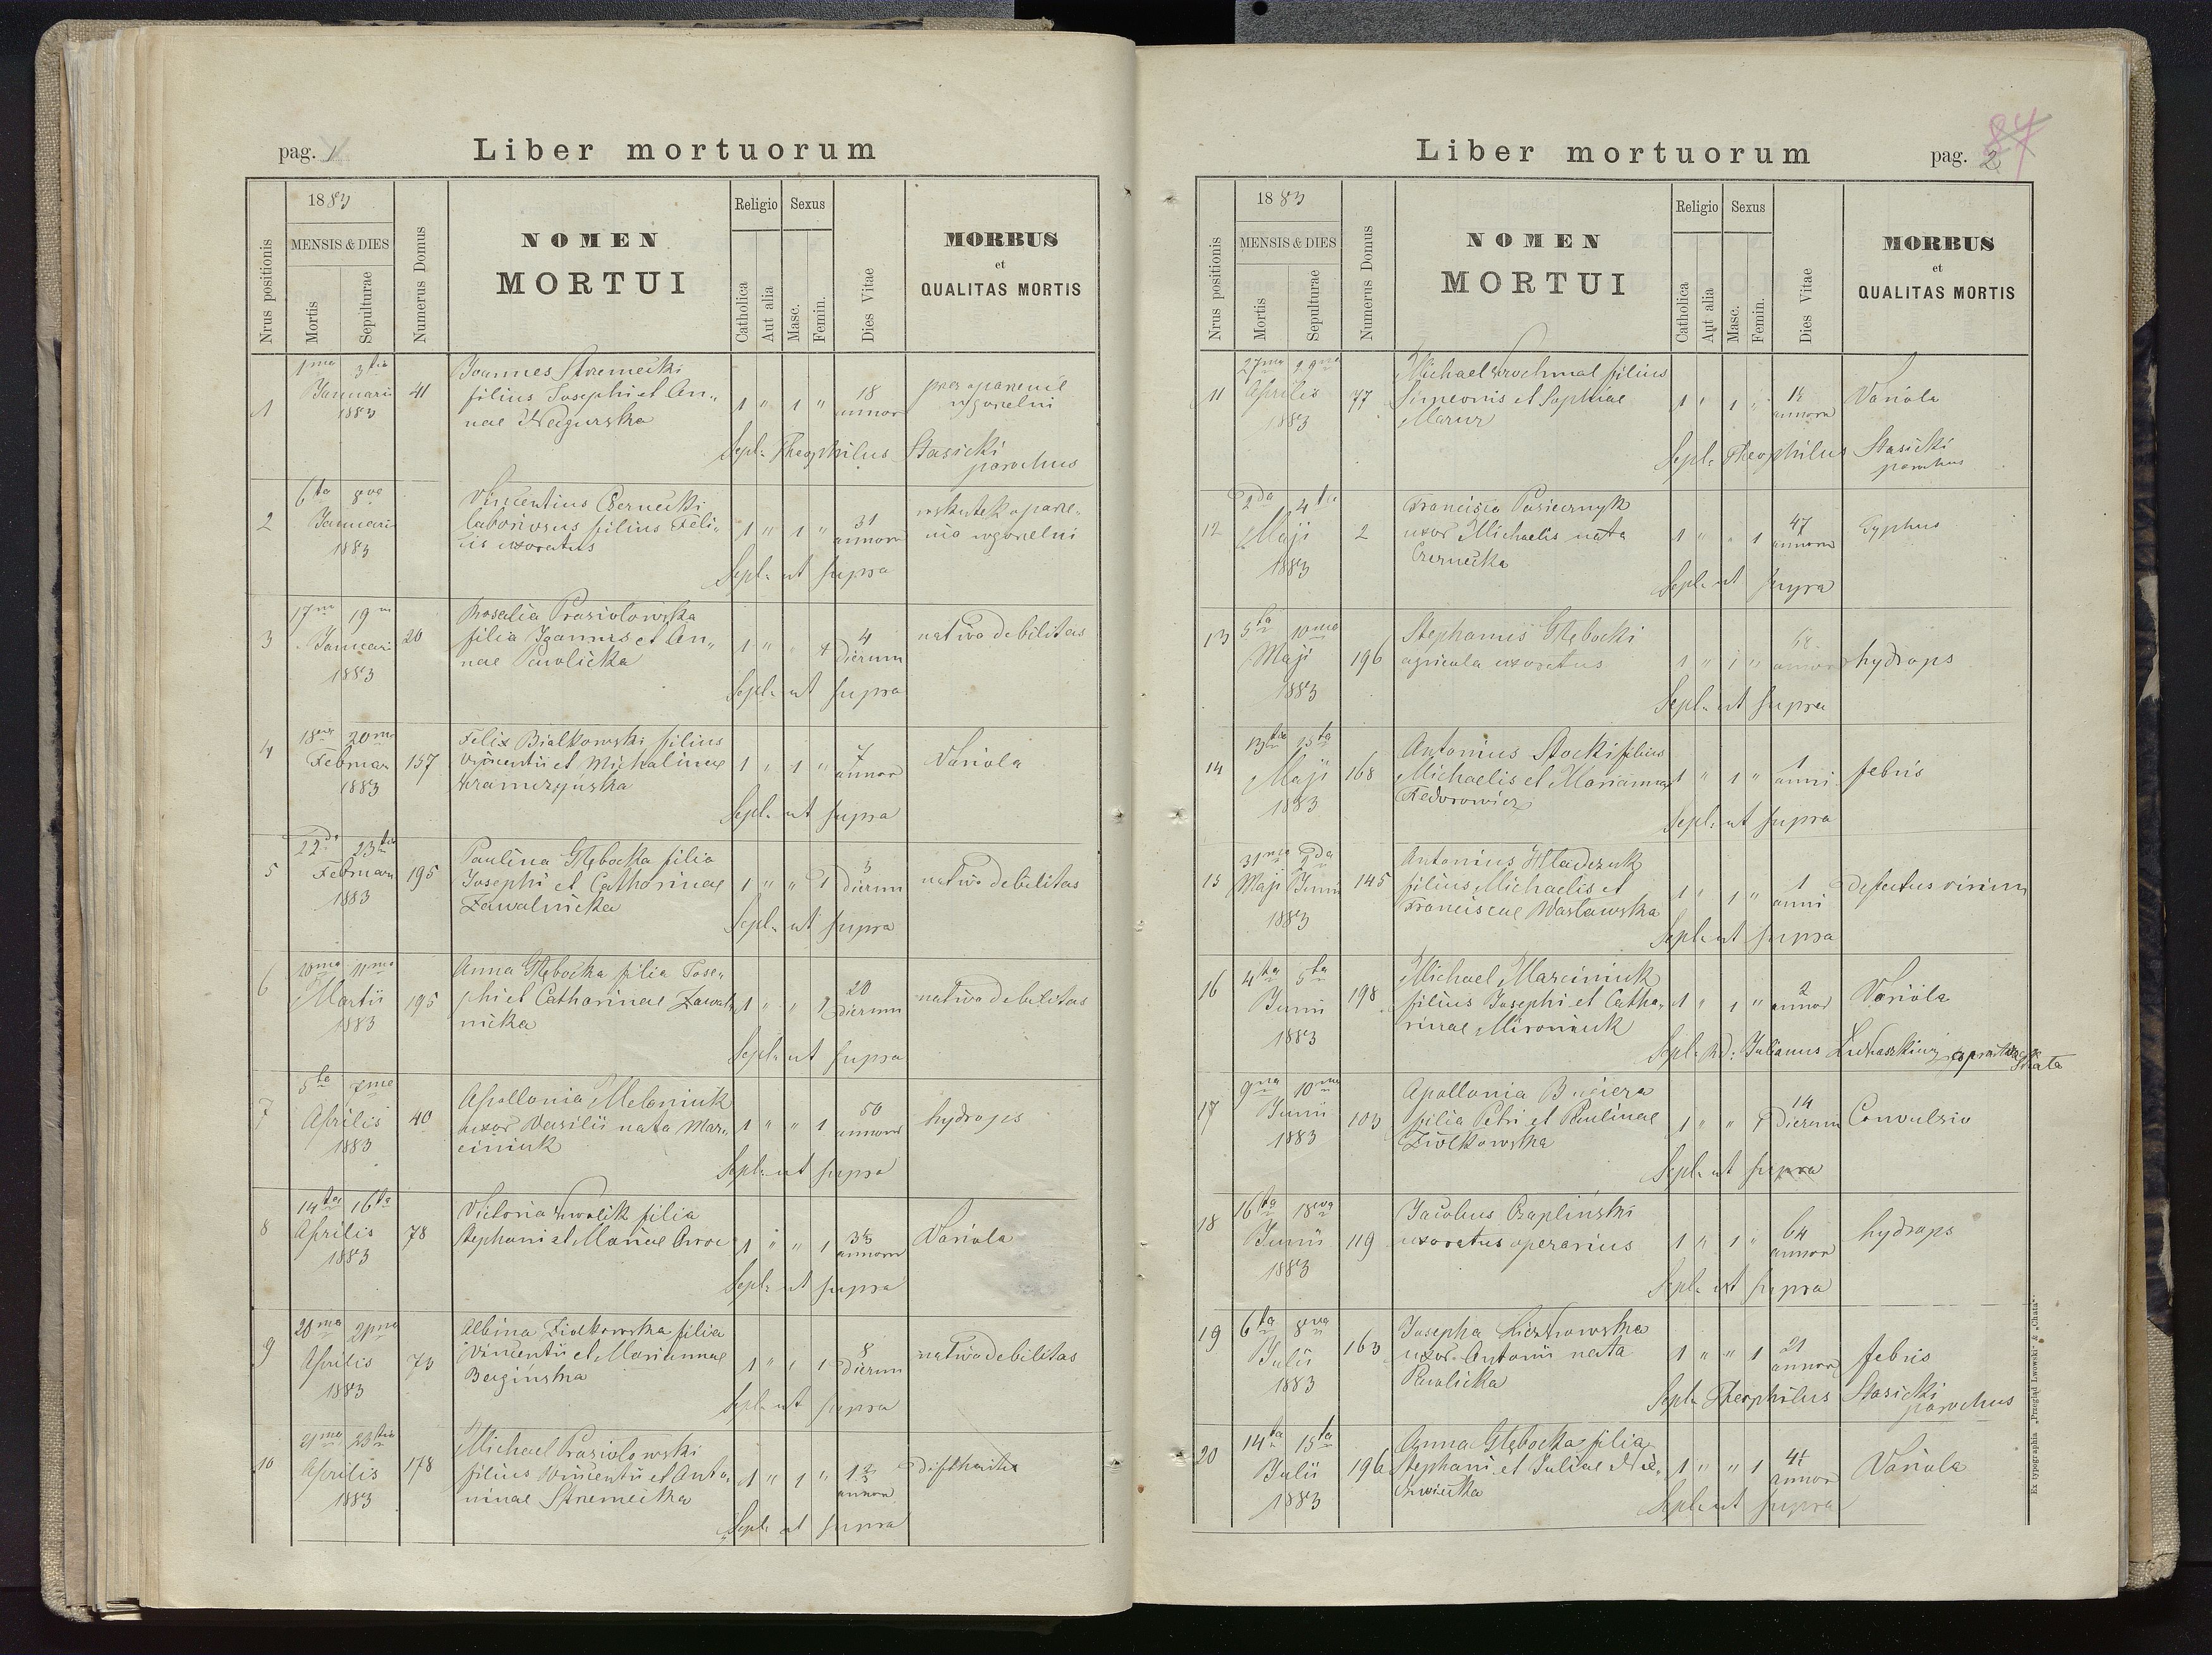 pag. 1
Liber mortuorum
Nrus positionis
1883
MENSIS & DIES
Mortis
Sepulturae
Numerus Domus
NOMEN
MORTUI
Religio
Catholica
Aut alia
Sexus
Masc.
Femin.
Dies Vitae
MORBUS
et
QUALITAS MORTIS
1
1ma 3tia
Januari
1883
41
Joannes Stremecki
filius Josephi et An„
nae Nagurska
1 " 1 "
18
annor
przez oparenie
w gorzelni
Sepl: Theophilus Stasicki
parochus
2
6ta 8va
Januari
1883
Vincentius Czernecki
laboriosus filius Feli„
cis uxoratus
1 " 1 "
31
annor
wskutek opare„
nia w gorzelni
Sepl: ut supra
3
17ma 19na
Januari
1883
20
Rosalia Prasiolowska
filia Joannis et An„
nae Pawlicka
1 " " 1
4
dierum
nativa debilitas
Sepl: ut supra
4
18va 20ma
Februar
1883
157
Felix Bialkowski filius
Vincentii et Michalinae
Kramczyńska
1 " 1 "
7
annor
Variola
Sepl: ut supra
5
22da 23tia
Februari
1883
195
Paulina Głębocka filia
Josephi et Catharinae
Zawalnicka
1 " " 1
3
dierum
nativa debilitas
Sepl: ut supra
6
10ma 11ma
Martii
1883
195
Anna Głębocka filia Jose„
phi et Catharinae Zawal„
nicka
1 " " 1
20
dierum
nativa debilitas
Sepl: ut supra
7
5ta 7ma
Aprilis
1883
40
Apollonia Melaniuk
uxor Vasilii nata Mar„
ciniuk
1 " " 1
50
annor
hydrops
Sepl: ut supra
8
14ta 16ta
Aprilis
1883
78
Victoria filia
Stephani et Mariae
1 " " 1
annor
Variola
Sepl: ut supra
9
20ma 21ma
Aprilis
1883
73
Albina Ziolkowska filia
Vincentii et Mariannae
Bagińska
1 " " 1
8
dierum
nativa debilitas
Sepl: ut supra
10
21ma 23tia
Aprilis
1883
178
Michael Prasiolowski
filius Vincentii et Anto„
ninae Stremecka
1 " 1 "
annor
difteritis
Sepl: ut supra
Liber mortuorum
pag. 2
84
Nrus positionis
1883
MENSIS & DIES
Mortis
Sepulturae
Numerus Domus
NOMEN
MORTUI
Religio
Catholica
Aut alia
Sexus
Masc.
Femin.
Dies Vitae
MORBUS
et
QUALITAS MORTIS
11
27ma 29na
Aprilis
1883
77
Michael Krochmal filius
Simeonis et Sophiae
Mazur
1 " 1 "
annor
Variola
Sepl: Theophilus Stasicki
parochus
12
2da 4ta
Maji
1883
2
Francisca Pasiecznyk
uxor Michaelis nata
Czernecka
1 " " 1
47
annor
Typhus
Sepl: ut supra
13
5ta 10ma
Maji
1883
196
Stephanus Głębocki
agricola uxoratus
1 " 1 "
annor
hydrops
Sepl: ut supra
14
13tia 15ta
Maji
1883
168
Antonius Stocki filius
Michaelis et Mariannae
Fedorowicz
1 " 1 "
1
anni
febris
Sepl: ut supra
15
31ma 2da
Maji Junii
1883
145
Antonius Hladczuk
filius Michaelis et
Franciscae Wasławska
1 " 1 "
1
anni
defectus virium
Sepl: ut supra
16
4ta 5ta
Junii
1883
198
Michael Marciniuk
filius Josephi et Catha„
rinae Mironiuk
1 " 1 "
2
annor
Variola
Sepl: Rd: Julianus
17
9na 10ma
Junii
1883
103
Apollonia
filia Petri et Paulinae
Ziolkowska
1 " " 1
14
dierum
Convulsio
Sepl: ut supra
18
16ta 18va
Junii
1883
119
Jacobus Czapliński
uxoratus operarius
1 " 1 "
64
annor
hydrops
Sepl: ut supra
19
6ta 8va
Julii
1883
163
Josepha
uxor Antonii nata
Pawlicka
1 " " 1
21
annor
febris
Sepl: Theophilus Stasicki
parochus
20
14ta 15ta
Julii
1883
196
Anna Głębocka filia
Stephani et Juliae Nie„
dźwiecka
1 " " 1
annor
Variola
Sepl: ut supra
Ex typographia „Przegląd Lwowski“ & „Chata“.